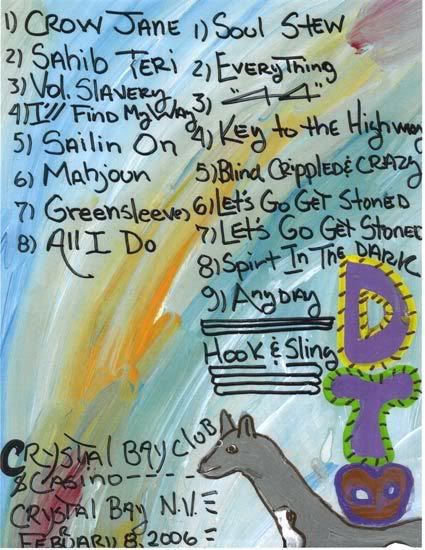 1) CROW JANE
2) SAHIB TERI
3) VOL. SLAVERY
4) I'll FIND MY WAY
5) SAILIN ON
6) MAHJOUN
7) GREENSLEEVES
8) ALL I DO
1) SOUL STEW
2) EVERYTHING
3) " "
4) KEY TO THE HIGHWAY
5) Blind, CRIPPLED & CRAZY
6) LET'S GO GET STONED
7) LET'S GO GET STONED
8) SPIRIT IN THE DARK
9) ANYDAY
HOOK & SLING
DTB
CRYSTAL BAY CLUB
& CASINO
CRYSTAL BAY N.V.
FEBRUARY 8, 2006